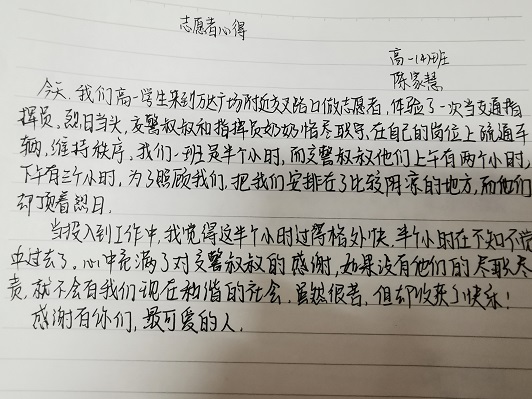 志愿者心得
高一(4)班
陈家慧
今天,我们高一学生来到万达广场附近交叉路口做志愿者,体验了一次当交通指
挥员。烈日当头,交警叔叔和指挥员奶奶恪尽职守,在自己的岗位上疏通车
辆,维持秩序。我们一班是半个小时,而交警叔叔他们上午有两个小时,
下午有三个小时,为了照顾我们,把我们安排在了比较阴凉的地方,而他们
却顶着烈日。
当投入到工作中,我觉得这半个小时过得格外快,半个小时在不知不觉
中过去了。心中充满了对交警叔叔的感谢,如果没有他们的尽职尽
责,就不会有我们现在和谐的社会。虽然很苦,但却收获了快乐!
感谢有你们,最可爱的人。